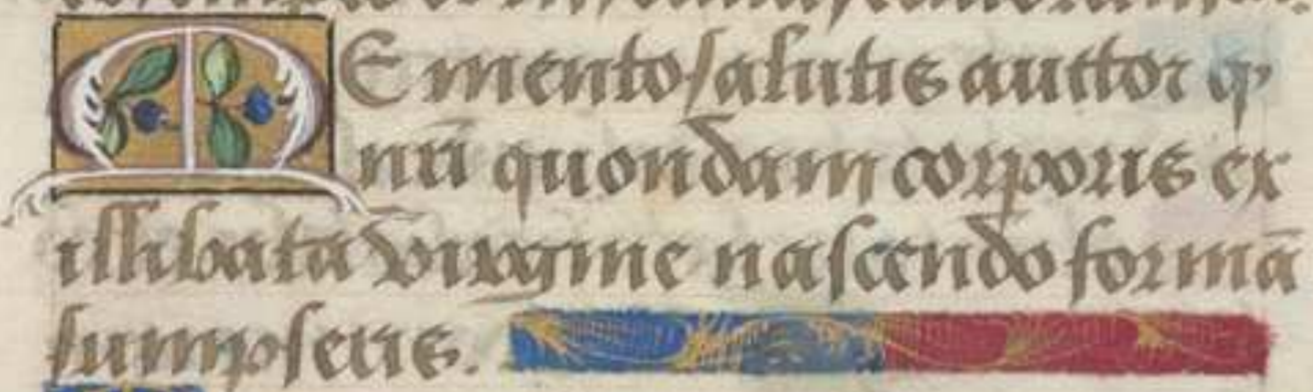 MEmento salutis auctor qꝫ
nr̃i quondam corporis ex
illibata virgine nascendo formā
sumpseris.